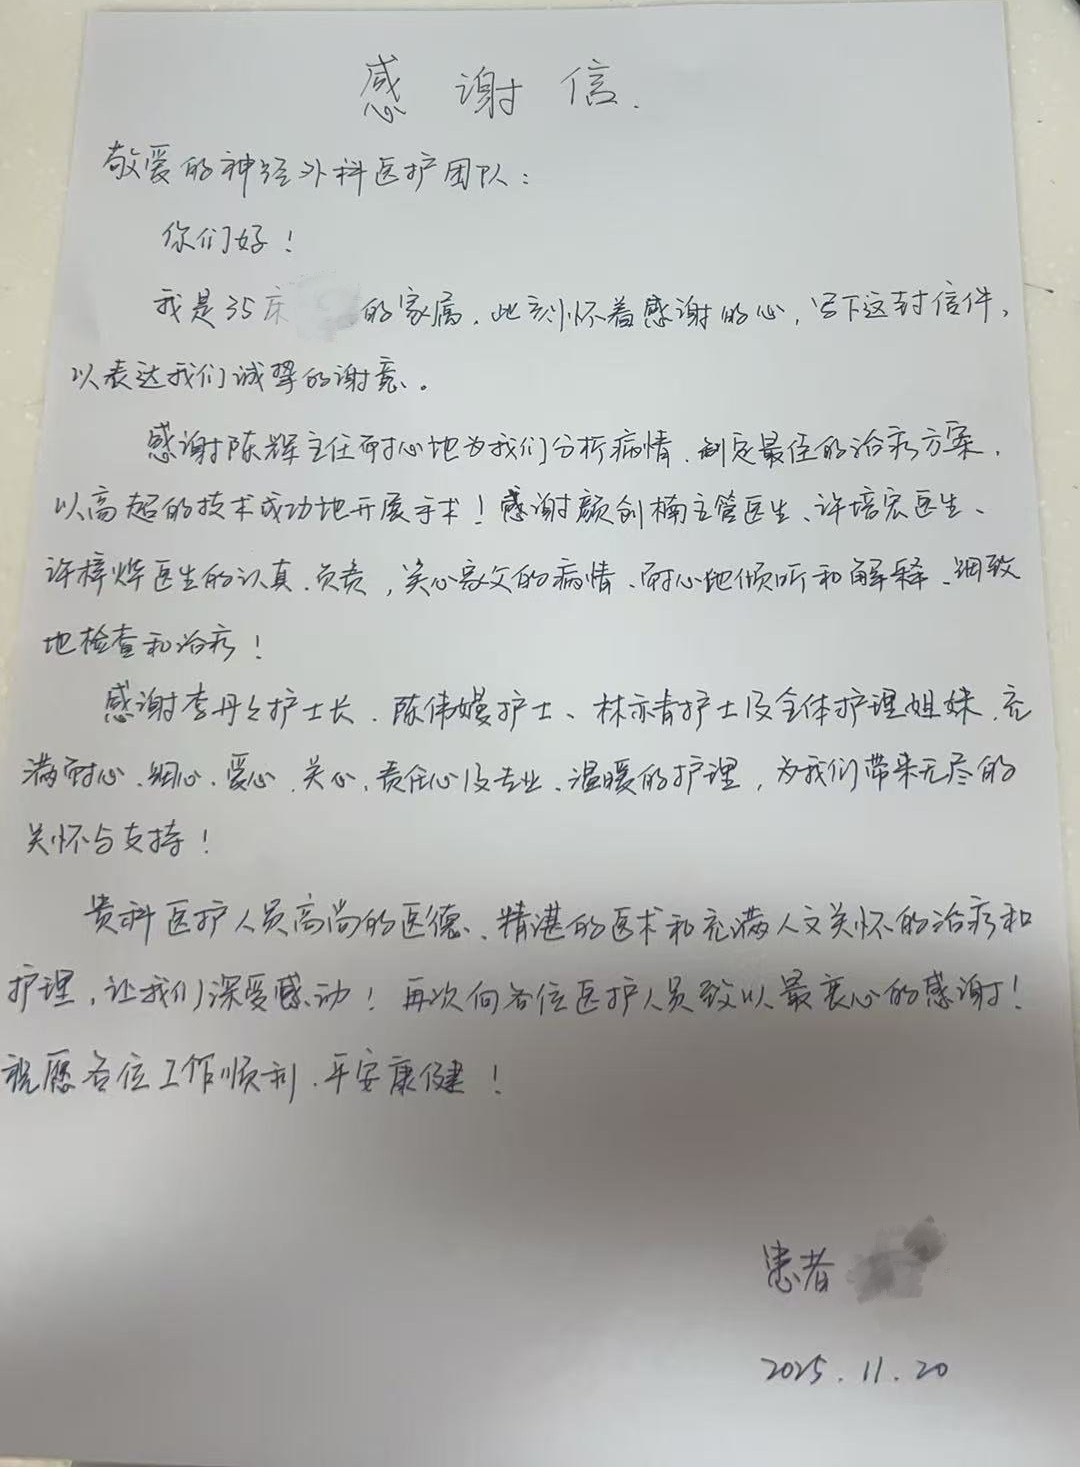 感谢信.
敬爱的神经外科医护团队：
你们好！
我是35床的家属，此刻怀着感谢的心，写下这封信件，
以表达我们诚挚的谢意。
感谢陈辉主任耐心地为我们分析病情、制定最佳的治疗方案，
以高超的技术成功地开展手术！感谢颜创楠主管医生、许培宏医生、
许梓烨医生的认真、负责，关心家父的病情、耐心地倾听和解释、细致
地检查和治疗！
感谢李丹仑护士长、陈伟嫚护士、林亦青护士及全体护理姐妹，充
满耐心、细心、爱心、关心、责任心及专业、温暖的护理，为我们带来无尽的
关怀与支持！
贵科医护人员高尚的医德、精湛的医术和充满人文关怀的治疗和
护理，让我们深受感动！再次向各位医护人员致以最衷心的感谢！
祝愿各位工作顺利、平安康健！
患者
2025.11.20